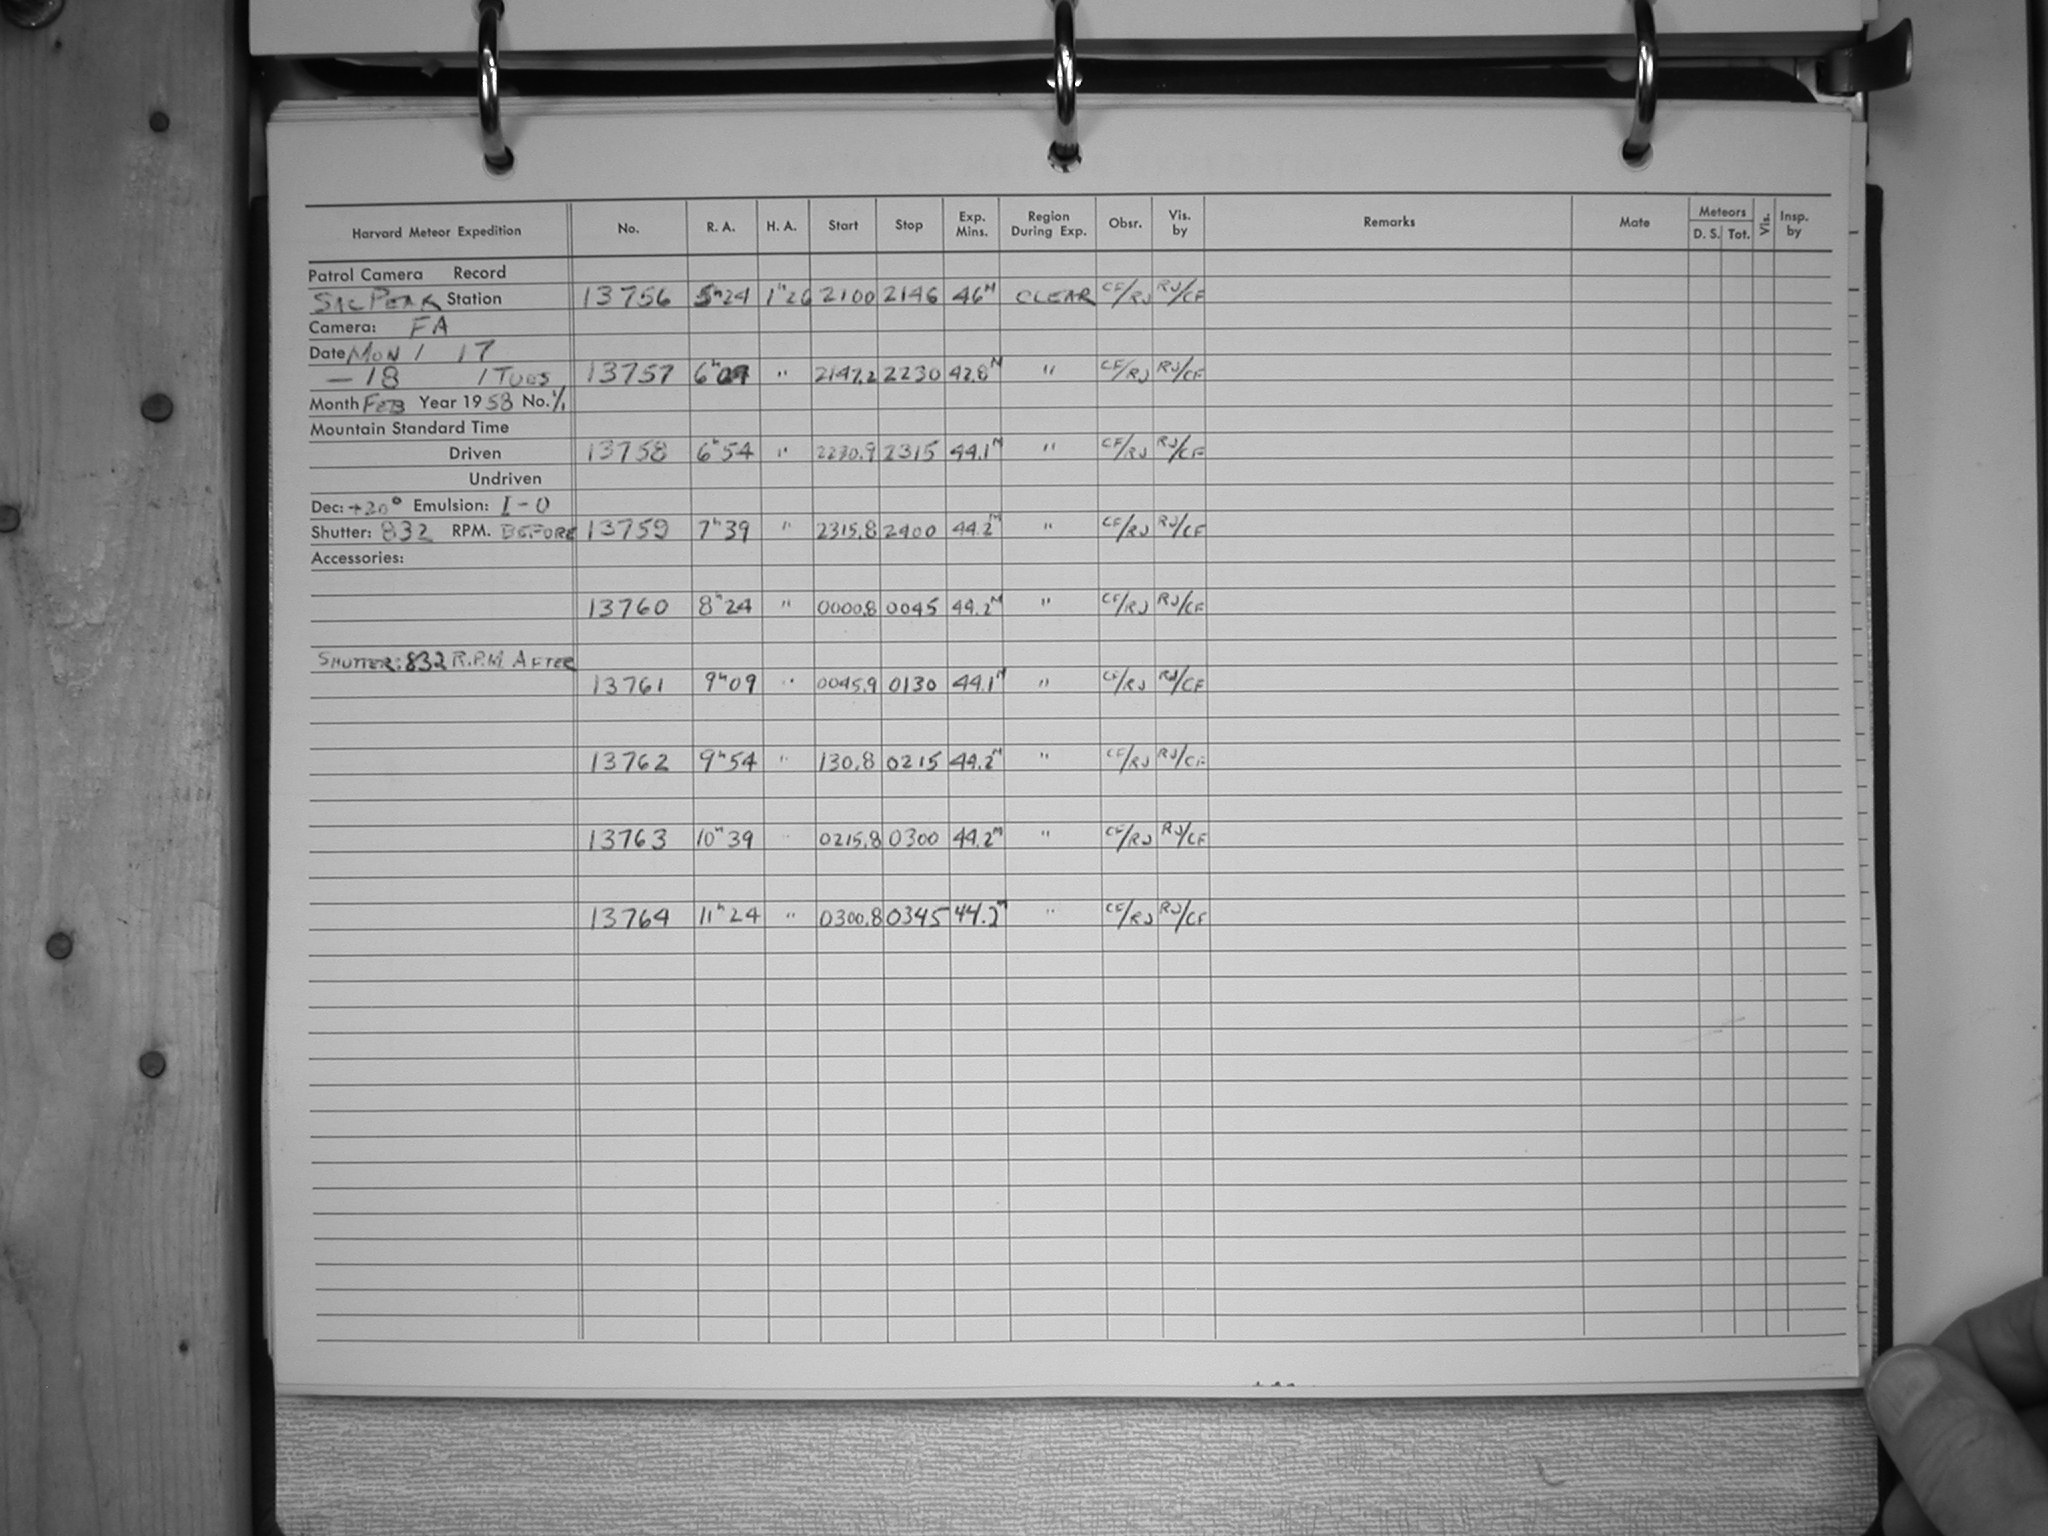 Harvard Meteor Expedition No. R. A. H. A. Start Stop Exp. Mins. Region During Exp. Obsr. Vis. by Remarks Mate Meteors D. S. Tot. Vis. Insp. by
Patrol Camera Record
SAC PEAK Station 13756 5h24 1h26 2100 2146 46M CLEAR CF/RJ RJ/CF
Camera: FA
Date MON / 17
— 18 / TUES 13757 6h09 " 2147.2 2230 42.8M " CF/RJ RJ/CF
Month FEB Year 1958 No. 1/1
Mountain Standard Time
Driven 13758 6h54 " 2230.9 2315 44.1M " CF/RJ RJ/CF
Undriven
Dec: +20° Emulsion: I-O
Shutter: 832 RPM. BEFORE 13759 7h39 " 2315.8 2400 44.2M " CF/RJ RJ/CF
Accessories:
13760 8h24 " 0000.8 0045 44.2M " CF/RJ RJ/CF
SHUTTER: 832 R.P.M. AFTER
13761 9h09 " 0045.9 0130 44.1M " CF/RJ RJ/CF
13762 9h54 " 130.8 0215 44.2M " CF/RJ RJ/CF
13763 10h39 " 0215.8 0300 44.2M " CF/RJ RJ/CF
13764 11h24 " 0300.8 0345 44.2M " CF/RJ RJ/CF